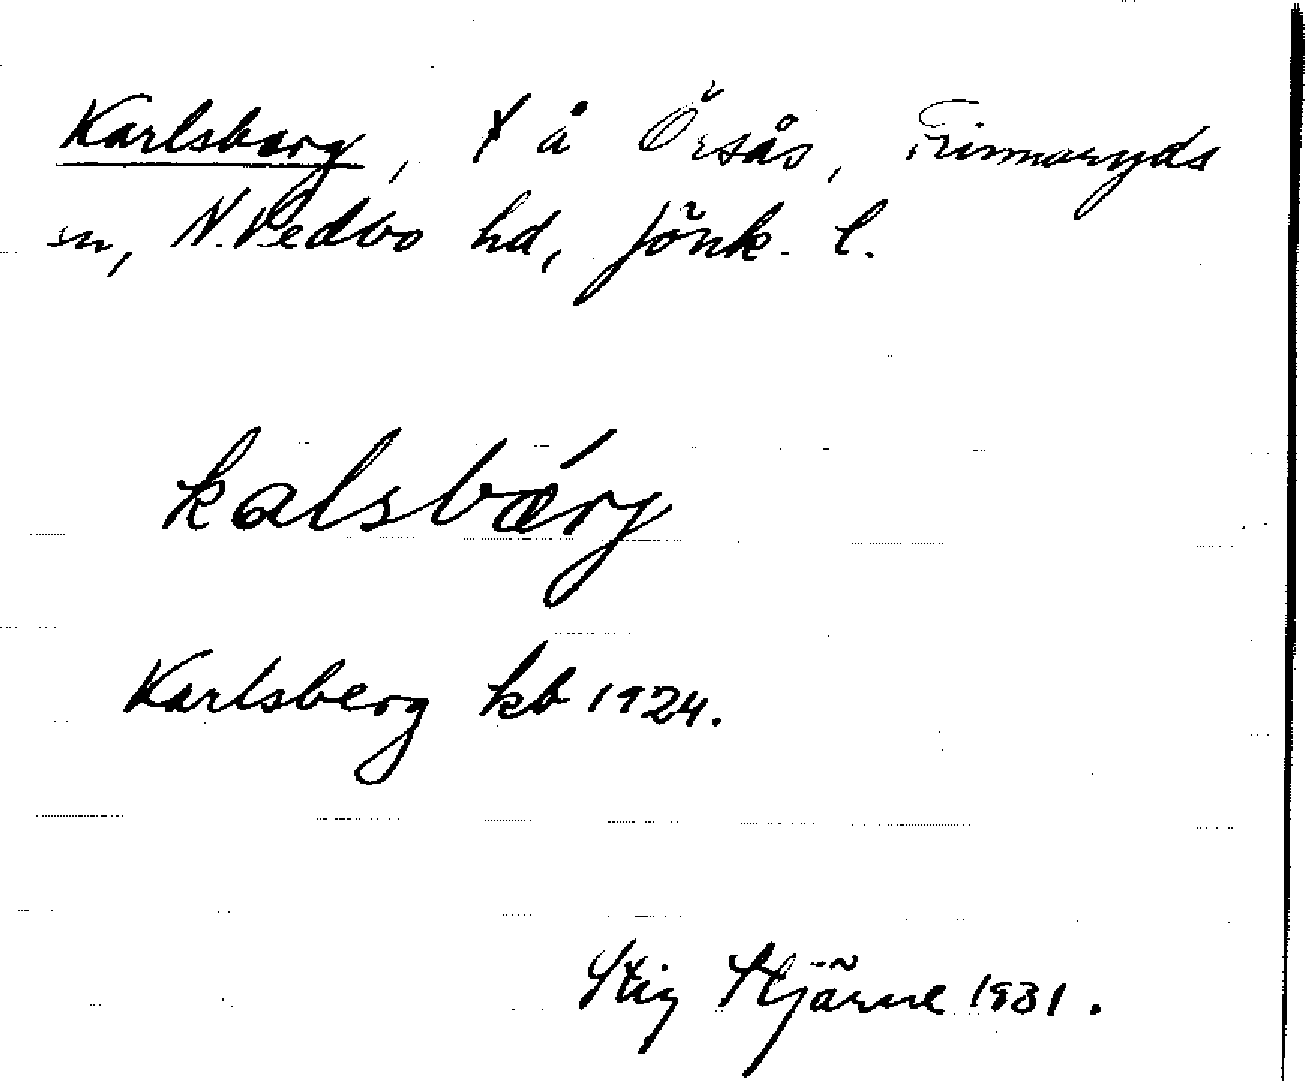 Karlsberg, t å Örsås, Frinnaryds
sn, N. Vedbo hd, Jönk. l.
kalsbærg
Karlsberg kb 1924.
Stig Hjärne 1931.